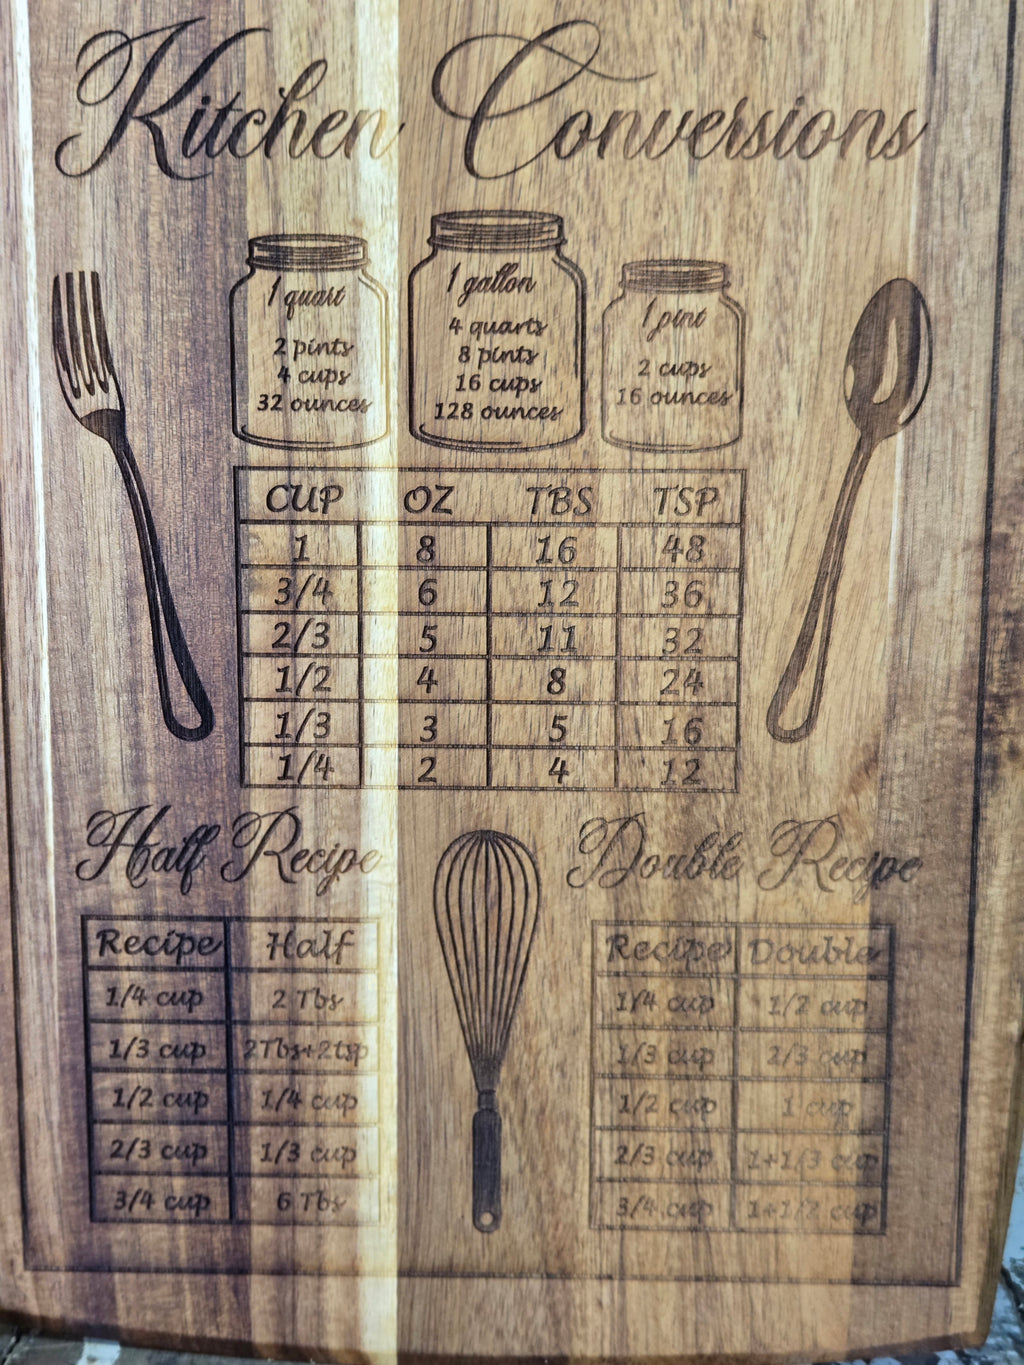 Kitchen Conversions
1 quart
2 pints
4 cups
32 ounces
1 gallon
4 quarts
8 pints
16 cups
128 ounces
1 pint
2 cups
16 ounces
CUP OZ TBS TSP
1 8 16 48
3/4 6 12 36
2/3 5 11 32
1/2 4 8 24
1/3 3 5 16
1/4 2 4 12
Half Recipe
Recipe Half
1/4 cup 2 Tbs
1/3 cup 2Tbs+2tsp
1/2 cup 1/4 cup
2/3 cup 1/3 cup
3/4 cup 6 Tbs
Double Recipe
Recipe Double
1/4 cup 1/2 cup
1/3 cup 2/3 cup
1/2 cup 1 cup
2/3 cup 1+1/3 cup
3/4 cup 1+1/2 cup